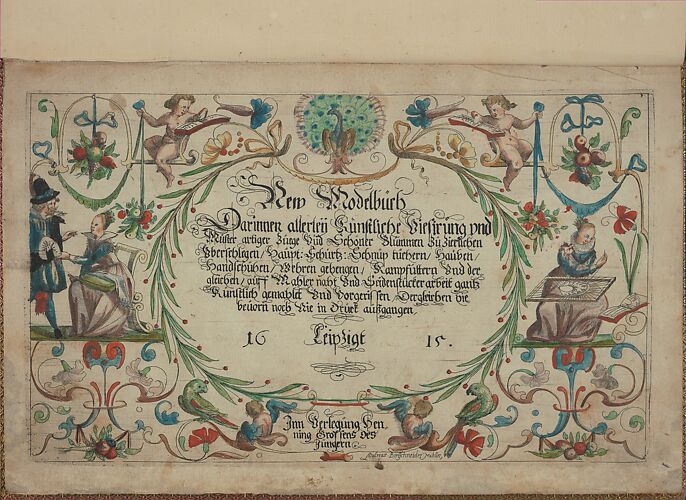 New Modelbuch
Darinnen allerley Künstliche Viesirung vnd
Müster artiger Züge Vnd Schöner Blümmen Zu Zierlichen
Vberschlegen / Haupt: Schurtz: Schnüp tüchern / Hauben /
Handschuhen / Wehren gehengen / Kampfüttern Vnd der
gleichen / auff Mahler naht Vnd Seidenstücker arbeit gantz
Künstlich gemahlet Vnd Vorgerissen, Dergleichen vie
beuorn noch Nie in Drück außgangen
16 Leipzigt 15.
Inn Verlegung Hen
ning Grossens Des
Jüngern
Andreas Bretschneider Mahler